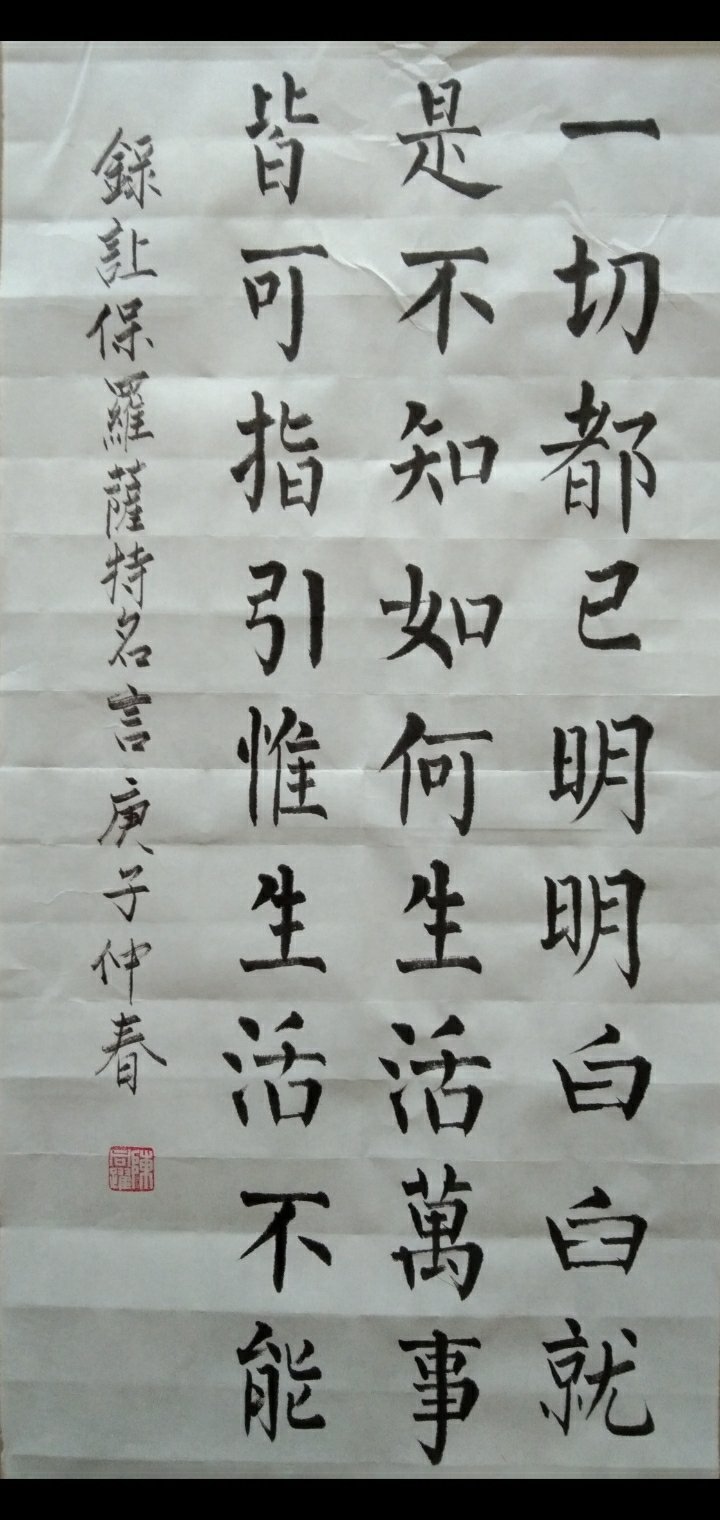 一切都已明明白白就
是不知如何生活萬事
皆可指引惟生活不能
錄让保羅薩特名言庚子仲春